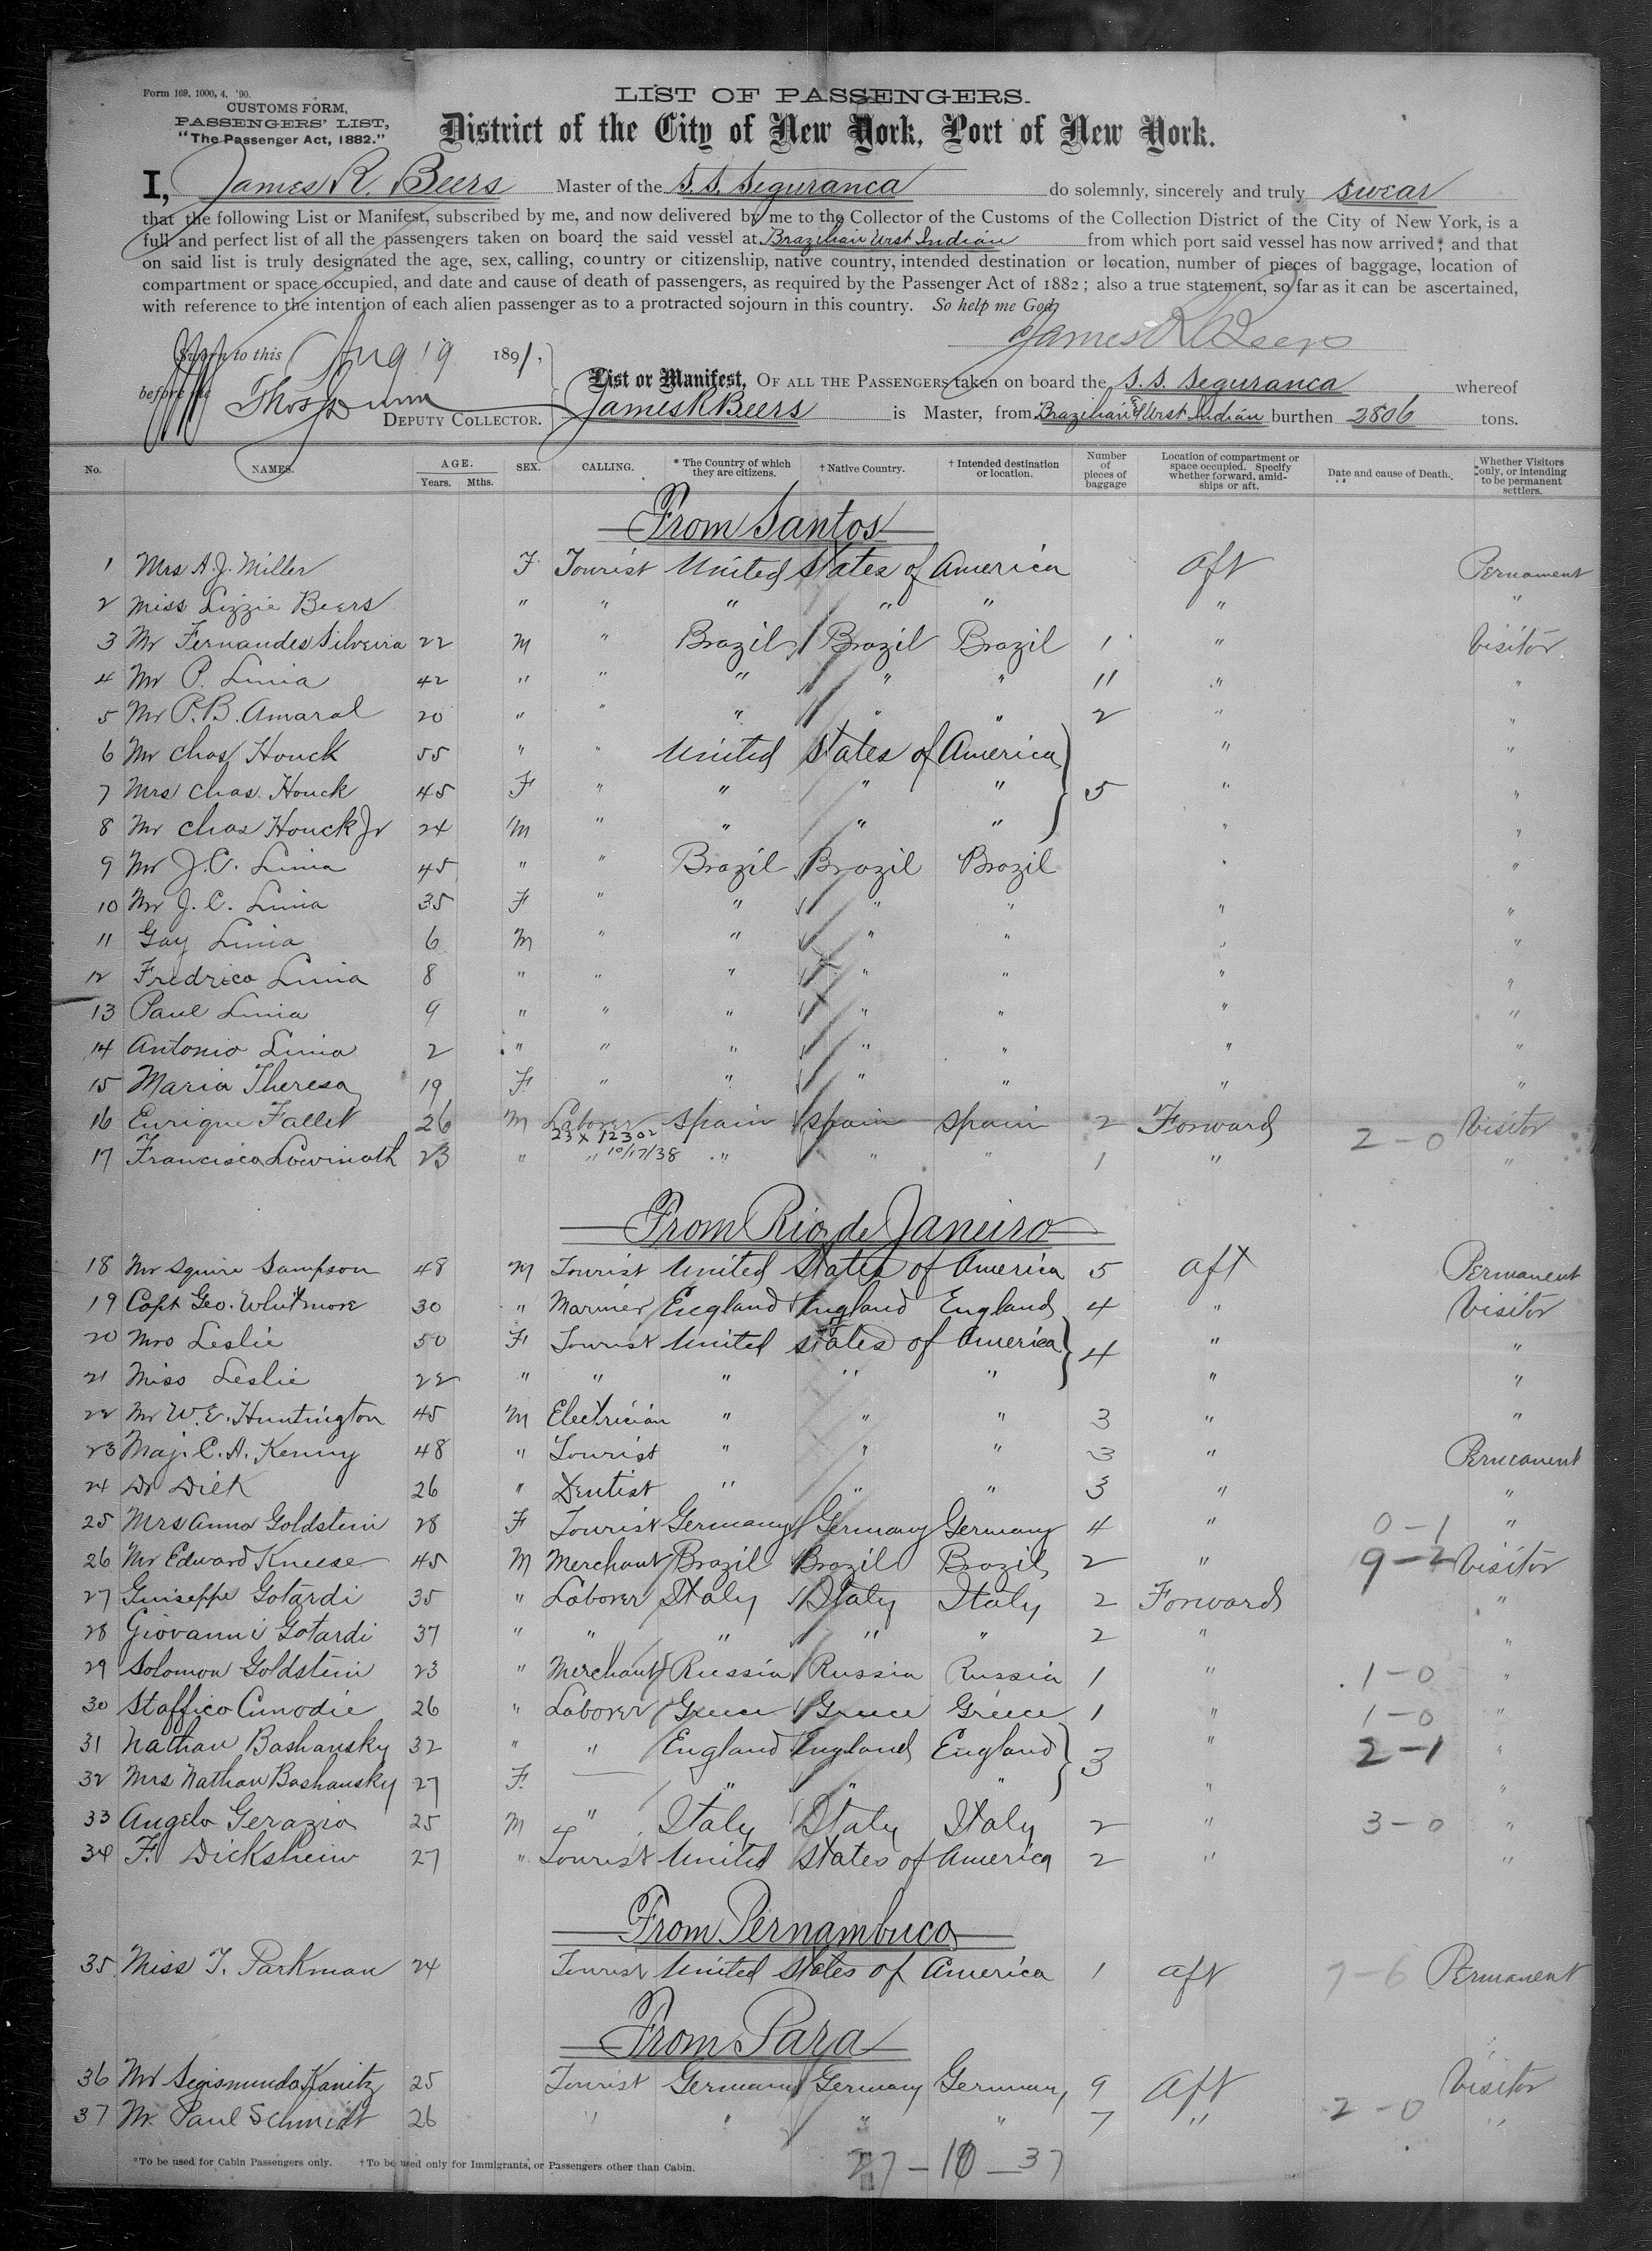 Form 169, 1000, 4, '90.
CUSTOMS FORM,
PASSENGERS' LIST,
"The Passenger Act, 1882."
LIST OF PASSENGERS.
District of the City of New York, Port of New York.
I, James R. Beers Master of the S.S. Seguranca do solemnly, sincerely and truly swear
that the following List or Manifest, subscribed by me, and now delivered by me to the Collector of the Customs of the Collection District of the City of New York, is a
full and perfect list of all the passengers taken on board the said vessel at Brazilian West Indian from which port said vessel has now arrived; and that
on said list is truly designated the age, sex, calling, country or citizenship, native country, intended destination or location, number of pieces of baggage, location of
compartment or space occupied, and date and cause of death of passengers, as required by the Passenger Act of 1882; also a true statement, so far as it can be ascertained,
with reference to the intention of each alien passenger as to a protracted sojourn in this country. So help me God,
James R Beers
Sworn to this Aug 19 1891,
before me Thos Dunn
DEPUTY COLLECTOR.
List or Manifest, OF ALL THE PASSENGERS taken on board the S.S. Seguranca whereof
James R Beers is Master, from Brazilian & West Indian burthen 2806 tons.
No. NAMES. AGE. Years. Mths. SEX. CALLING. * The Country of which they are citizens. † Native Country. † Intended destination or location. Number of pieces of baggage Location of compartment or space occupied. Specify whether forward, amidships or aft. Date and cause of Death. Whether Visitors only, or intending to be permanent settlers.
From Santos
1 Mrs A. J. Miller F Tourist United States of America Aft Pernament
2 Miss Lizzie Beers " " " " " " "
3 Mr Fernandes Silveira 22 M " Brazil Brazil Brazil 1 " Visitor
4 Mr P. Linia 42 " " " " " 11 " "
5 Mr P. B. Amaral 20 " " " " " 2 " "
6 Mr Chas Houck 55 " " United States of America " "
7 Mrs Chas. Houck 45 F " " " " 5 " "
8 Mr Chas Houck Jr 24 M " " " " " "
9 Mr J. C. Linia 45 " " Brazil Brazil Brazil " "
10 Mr J. C. Linia 35 F " " " " " "
11 Gay Linia 6 M " " " " " "
12 Fredrico Linia 8 " " " " " " "
13 Paul Linia 9 " " " " " " "
14 Antonio Linia 2 " " " " " " "
15 Maria Theresa 19 F " " " " " "
16 Enrique Fallet 26 M Laborer Spain Spain Spain 2 Forward 2-0 Visitor
23 X 12302
17 Francisco 23 " " 10/17/38 " " " 1 " "
From Rio de Janeiro
18 Mr Squire Sampson 48 M Tourist United States of America 5 Aft Permanent
19 Capt Geo. Whitmore 30 " Mariner England England England 4 " Visitor
20 Mrs Leslie 50 F Tourist United States of America 4 " "
21 Miss Leslie 22 " " " " " " "
22 Mr W. E. Huntington 45 M Electrician " " " 3 " "
23 Maj. C. A. Kenny 48 " Tourist " " " 3 " Permanent
24 Dr Dick 26 " Dentist " " " 3 " "
25 Mrs Anna Goldstein 28 F Tourist Germany Germany Germany 4 " 0-1 "
26 Mr Edward Kneese 45 M Merchant Brazil Brazil Brazil 2 " 9-2 Visitor
27 Guiseppe Gotardi 35 " Laborer Italy Italy Italy 2 Forward "
28 Giovanni Gotardi 37 " " " " " 2 " "
29 Solomon Goldstein 23 " Merchant Russia Russia Russia 1 " 1-0 "
30 Staffico Cunodie 26 " Laborer Greece Greece Greece 1 " 1-0 "
31 Nathan Bashansky 32 " " England England England 3 " 2-1 "
32 Mrs Nathan Bashansky 27 F. — " " " " "
33 Angelo Gerazio 25 M " Italy Italy Italy 2 " 3-0 "
34 F. Dickshein 27 " Tourist United States of America 2 " "
From Pernambuco
35 Miss T. Parkman 24 Tourist United States of America 1 aft 7-6 Permanent
From Para
36 Mr Segismundo Kanitz 25 Tourist Germany Germany Germany 9 Aft Visitor
37 Mr Paul Schmidt 26 " " " " 7 " 2-0 "
*To be used for Cabin Passengers only. †To be used only for Immigrants, or Passengers other than Cabin.
27-10-37